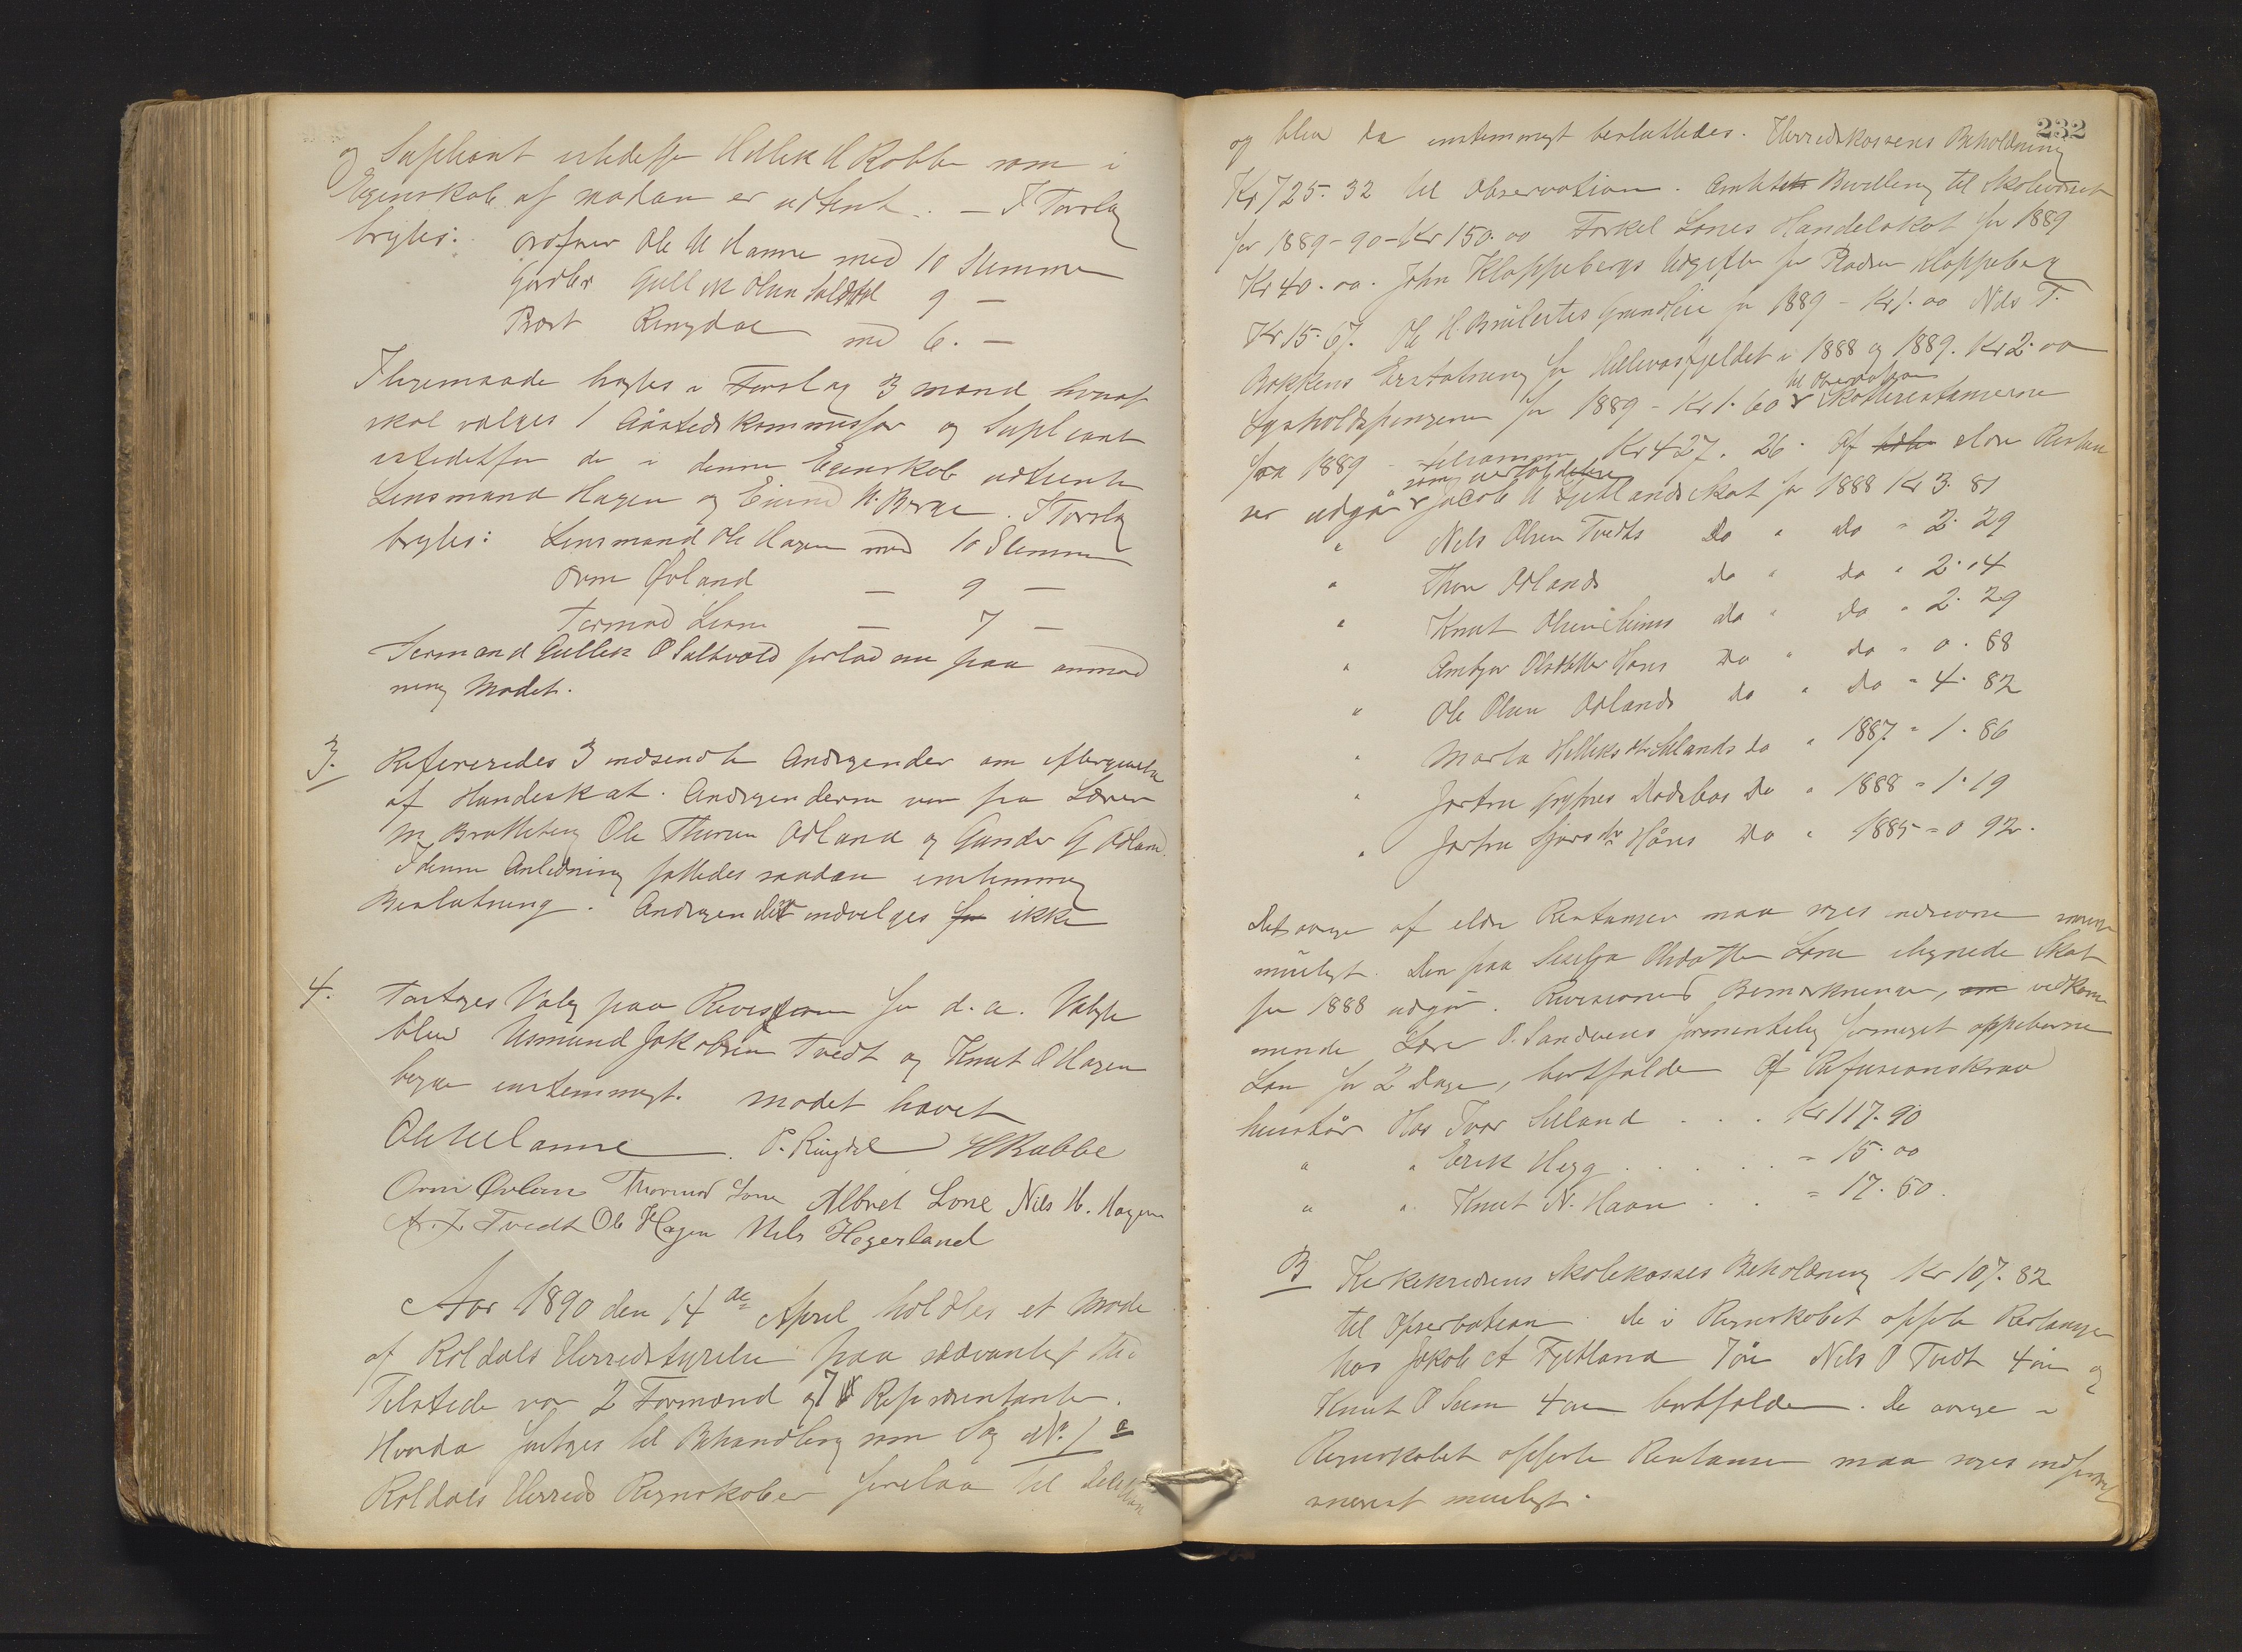 og Supleant istedetfor Hellek H Rabbe som i
Egenskab af madan er udtient. — I Forslag
bragtes: Ordfører Ole H Hamre med 10 Stemmer
Gardbr Gullik Olsen Saltvold 9 —
Præst Ringdal med 6. —
I ligemaade bragtes i Forslag 3 mand hvoraf
skal vælges 1 Aastedskommissær og Supleant
istedetfor de i denne Egenskab udtiente
Lensmand Hagen og Eivind N. Berge. I Forslag
bragtes: Lensmand Ole Hagen med 10 Stemmer
Orm Øvland — 9 —
Tormod Lone — 7 —
Formand Gullik O Saltvold forlod nu paa anmod
ning Mødet.
3. Refereredes 3 indsendte Andragender om eftergivelse
af Hundeskat. Andragenderne var fra Lærer
M. Brattebeg Ole Thoresen Odland og Gunder G Odland.
I denne Anledning fattedes saadan enstemmig
Beslutning. Andragendet indvilges ikke
4. Foretoges Valg paa Revisorer for d. a. Valgte
blev Asmund Jakobsen Tvedt og Knut O Hagen
begge enstemmigt. Mødet hævet
Ole H Hamre. P. Ringdal H Rabbe
Orm Øvland Thormod Lone Albret Lone Nils H. Hagen
A. J. Tvedt Ole Hagen Nils Hegerland
Aar 1890 den 14de April holdtes et Møde
af Røldals Herredstyrelse paa sædvanligt Sted
Tilstede var 2 Formænd og 7 Repræsentanter.
Hvorda foretoges til Behandling som Sag No. 1 a
Røldals Herreds Regnskaber forelaa til Decision
232
og blev da enstemmigt besluttedes. Herredskassens Beholdning
Kr 725.32 til Observation. Amtets Bevilling til Skolevæsnet
for 1889-90 - Kr 150.00 Torkel Lones Handelskat for 1889
Kr 40.00. John Kloppebergs Udgifter for Pladsen Kloppeberg
Kr 15.67. Ole H. Bruletes Grundleie for 1889 - Kr 1.00 Nils T.
Bakkens Erstatning for Hellevasfjeldet i 1888 og 1889. Kr 2.00
til Observation
Lysholdspengene for 1889 - Kr 1.60 Skatterestanserne
fra 1889 - tilsammen Kr 427.26. Af eldre Restan
som uerholdelige
ser udgår Jacob A Fjetlands Skat for 1888 Kr 3.81
" Nils Olsen Tvedts Do " Do " 2.29
" Thore Odlands do " do " 2.14
" Knut Olsen Seims do " do " 2.29
" Ambjør Olsdatter Haus Do " do " 0.88
" Ole Olsen Odlands do " do " 4.82
" Marta Helleksdtr Selands do " 1887 " 1.86
" Jortru Dødsbos Do " 1888 = 1.19
" Jortru Hårs Do " 1885 = 0 92.
Det øvrige af eldre Restanser maa søges inddrevne snarest
muligt. Den paa Olsdatter Lone ilignede Skat
for 1888 udgår. Revisionens Bemærkninger, vedkom
mende Lærer O. Sandvens formentelig formeget oppebaarne
Løn for 2 Dage, bortfalder Af Refusionskrav
henstår Hos Ivar Seland . . . Kr 117.90
" " Erik Hegg . . . . . = 15.00
" " Knut N. Haan . . = 17.50.
B Kirkekredsens Skolekasses Beholdning Kr 107.82
til Opserbation. de i Regnskabet opførte Restanser
hos Jakob A Fjetland 7 øre Nils O Tvedt 4 øre og
Knut O Seim 4 øre bortfalder. De øvrige i
Regnskabet opførte Restanser maa søges indfordret
snarest muligt.